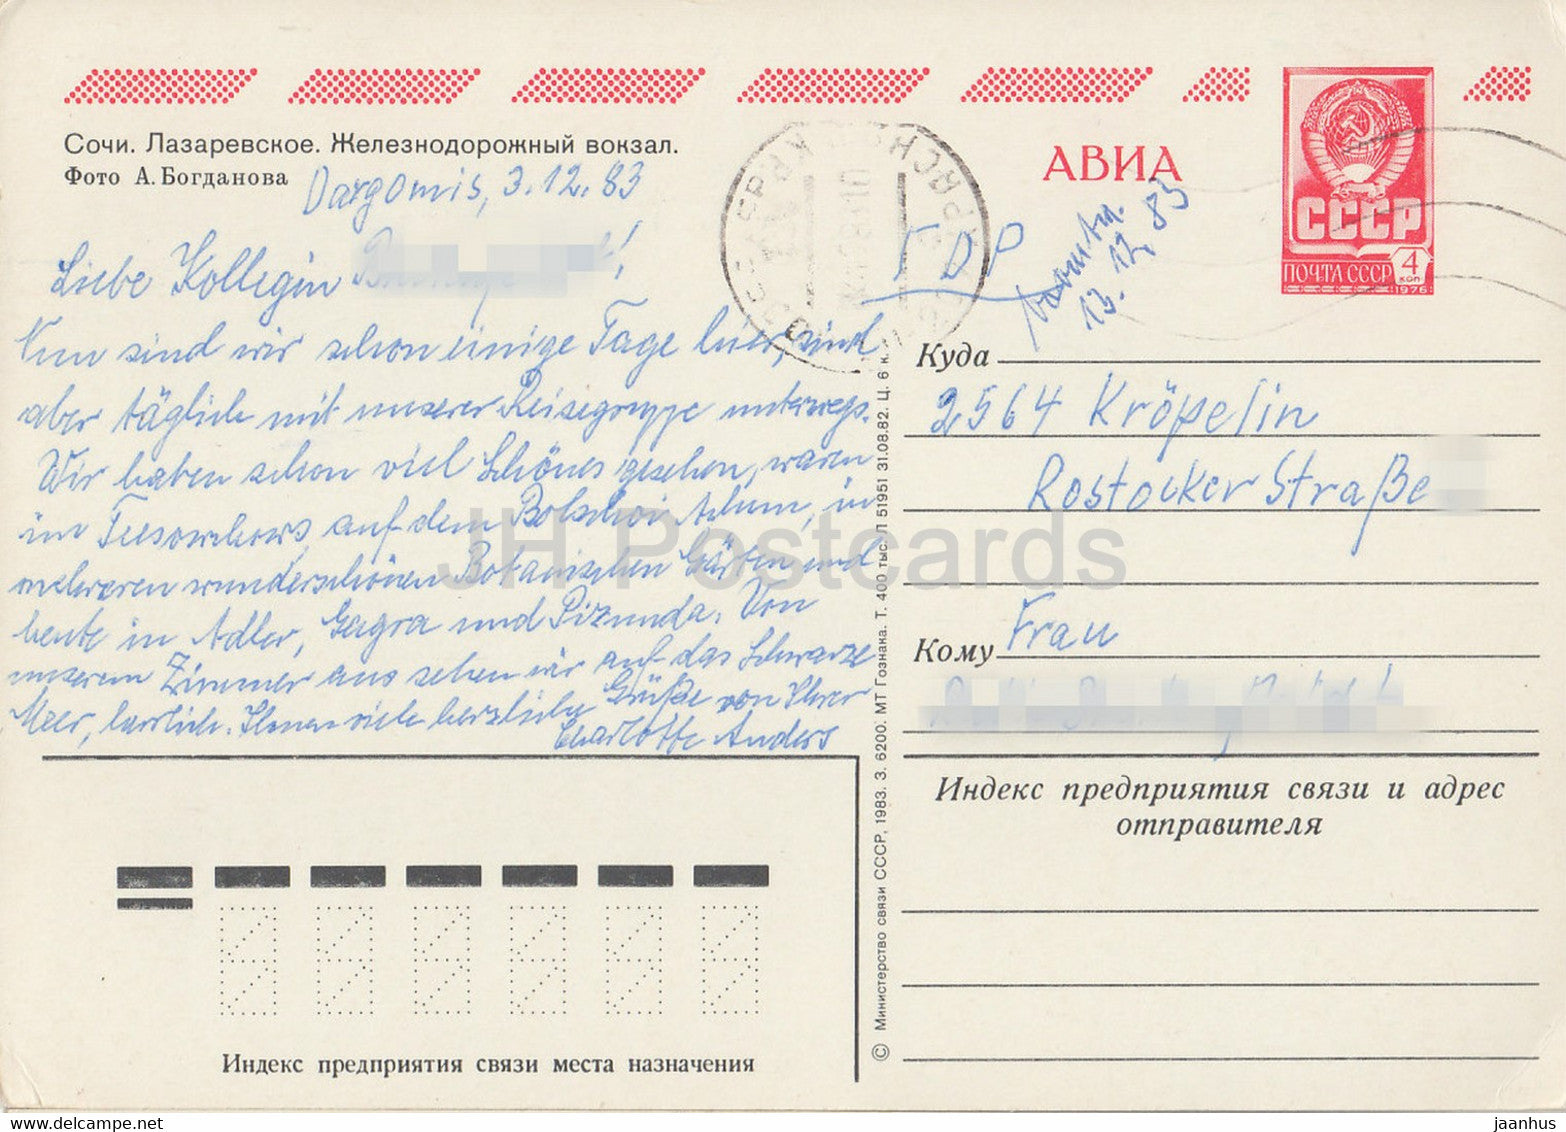 Сочи. Лазаревское. Железнодорожный вокзал.
Фото А. Богданова
Dargomis, 3.12.83
Liebe Kollegin
Nun sind wir schon einige Tage hier, sind
aber täglich mit unserer Reisegruppe unterwegs.
Wir haben schon viel Schönes gesehen, waren
im Teesowchows, auf dem Bolschoi Achun, in
mehreren wunderschönen Botanischen Gärten und
heute in Adler, Gagra und Pizunda. Von
unserem Zimmer aus sehen wir auf das Schwarze
Meer, herrlich. Ihnen viele herzliche Grüße von Ihrer
Charlotte Anders
АВИА
ГДР
13.12.83
СССР
ПОЧТА СССР
4 коп
1976
Куда
2564 Kröpelin
Rostocker Straße
Кому Frau
Индекс предприятия связи и адрес
отправителя
Индекс предприятия связи места назначения
© Министерство связи СССР, 1983. З. 6200. МТ Гознака. Т. 400 тыс. Л 51951 31.08.82. Ц. 6 к.
JH Postcards
www.delcampe.net
jaanhus